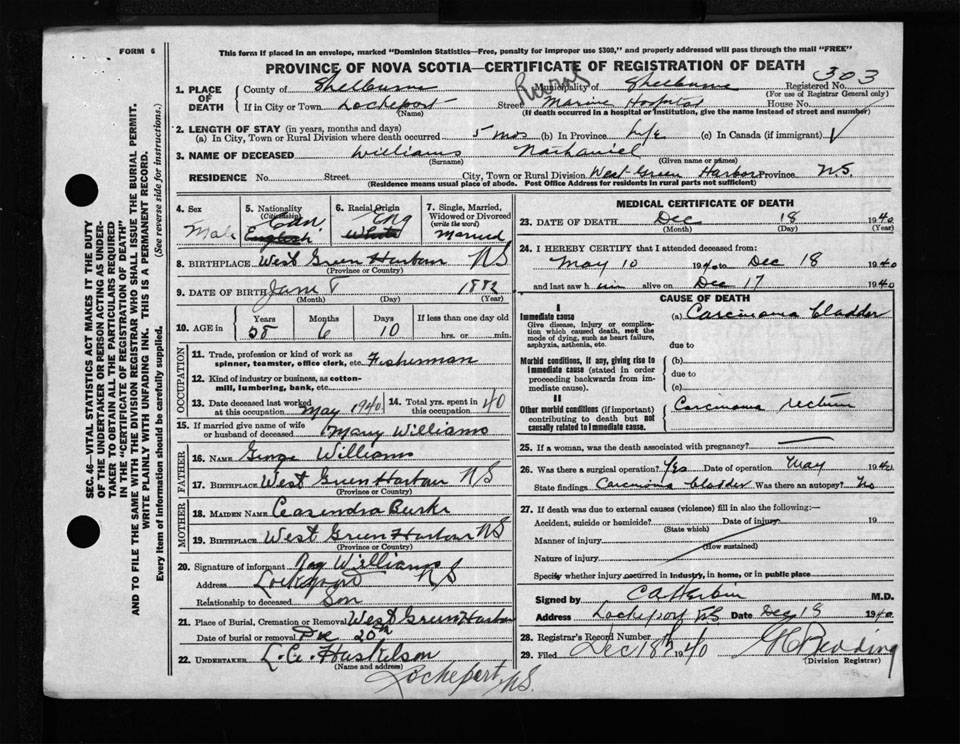 FORM 6
This form if placed in an envelope, marked "Dominion Statistics—Free, penalty for improper use $300," and properly addressed will pass through the mail "FREE"
PROVINCE OF NOVA SCOTIA—CERTIFICATE OF REGISTRATION OF DEATH
303
1. PLACE OF DEATH County of Shelburne Municipality of Shelburne Registered No.
(For use of Registrar General only)
If in City or Town Lockeport Street Marine Hospital House No.
(Name) (If death occurred in a hospital or institution, give name instead of street and number)
2. LENGTH OF STAY (in years, months and days)
(a) In City, Town or Rural Division where death occurred 5 mos (b) In Province Life (c) In Canada (if immigrant)
3. NAME OF DECEASED Williams Nathaniel
(Surname) (Given name or names)
RESIDENCE No. Street City, Town or Rural Division West Green Harbor Province N.S.
(Residence means usual place of abode. Post Office Address for residents in rural parts not sufficient)
4. Sex Male
5. Nationality (Citizenship) Can. English
6. Racial Origin Eng White
7. Single, Married, Widowed or Divorced (write the word) Married
8. BIRTHPLACE West Green Harbour NS
(Province or Country)
9. DATE OF BIRTH June 8 1882
(Month) (Day) (Year)
10. AGE in Years Months Days If less than one day old
58 6 10 hrs. or min.
OCCUPATION
11. Trade, profession or kind of work as spinner, teamster, office clerk, etc. Fisherman
12. Kind of industry or business, as cotton-mill, lumbering, bank, etc.
13. Date deceased last worked at this occupation May 1940 14. Total yrs. spent in this occupation 40
15. If married give name of wife or husband of deceased Mary Williams
FATHER
16. NAME George Williams
17. BIRTHPLACE West Green Harbour NS
(Province or Country)
MOTHER
18. MAIDEN NAME Ceasendra Burke
19. BIRTHPLACE West Green Harbour NS
(Province or Country)
20. Signature of informant Roy Williams
Address Lockeport NS
Relationship to deceased Son
21. Place of Burial, Cremation or Removal West Green Harbour
Date of burial or removal Dec 20th
22. UNDERTAKER L. C. Huskilson
(Name and address)
Lockeport N.S.
MEDICAL CERTIFICATE OF DEATH
23. DATE OF DEATH Dec 18 1940
(Month) (Day) (Year)
24. I HEREBY CERTIFY that I attended deceased from:
May 10 1940 to Dec 18 1940
and last saw him alive on Dec 17 1940
CAUSE OF DEATH
I
Immediate cause (a) Carcinoma bladder
Give disease, injury or complication which caused death, not the mode of dying, such as heart failure, asphyxia, asthenia, etc.
due to
Morbid conditions, if any, giving rise to immediate cause (stated in order proceeding backwards from immediate cause). (b)
due to
(c)
II
Other morbid conditions (if important) contributing to death but not causally related to immediate cause. Carcinoma rectum
25. If a woman, was the death associated with pregnancy?
26. Was there a surgical operation? Yes Date of operation May 1940
State findings Carcinoma bladder Was there an autopsy? No
27. If death was due to external causes (violence) fill in also the following:—
Accident, suicide or homicide? Date of injury 19
(State which)
Manner of injury
(How sustained)
Nature of injury
Specify whether injury occurred in industry, in home, or in public place
Signed by M.D.
Address Lockeport N.S. Date Dec 18 1940
28. Registrar's Record Number
29. Filed Dec 18th 1940
(Division Registrar)
SEC. 46—VITAL STATISTICS ACT MAKES IT THE DUTY
OF THE UNDERTAKER OR PERSON ACTING AS UNDER-
TAKER TO OBTAIN ALL THE PARTICULARS REQUIRED
IN THE "CERTIFICATE OF REGISTRATION OF DEATH"
AND TO FILE THE SAME WITH THE DIVISION REGISTRAR WHO SHALL ISSUE THE BURIAL PERMIT.
WRITE PLAINLY WITH UNFADING INK. THIS IS A PERMANENT RECORD.
Every item of information should be carefully supplied. (See reverse side for instructions.)